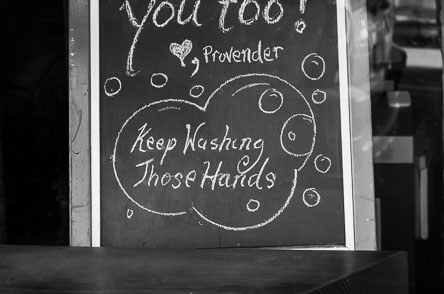 you too!
♥, Provender
Keep Washing
Those Hands